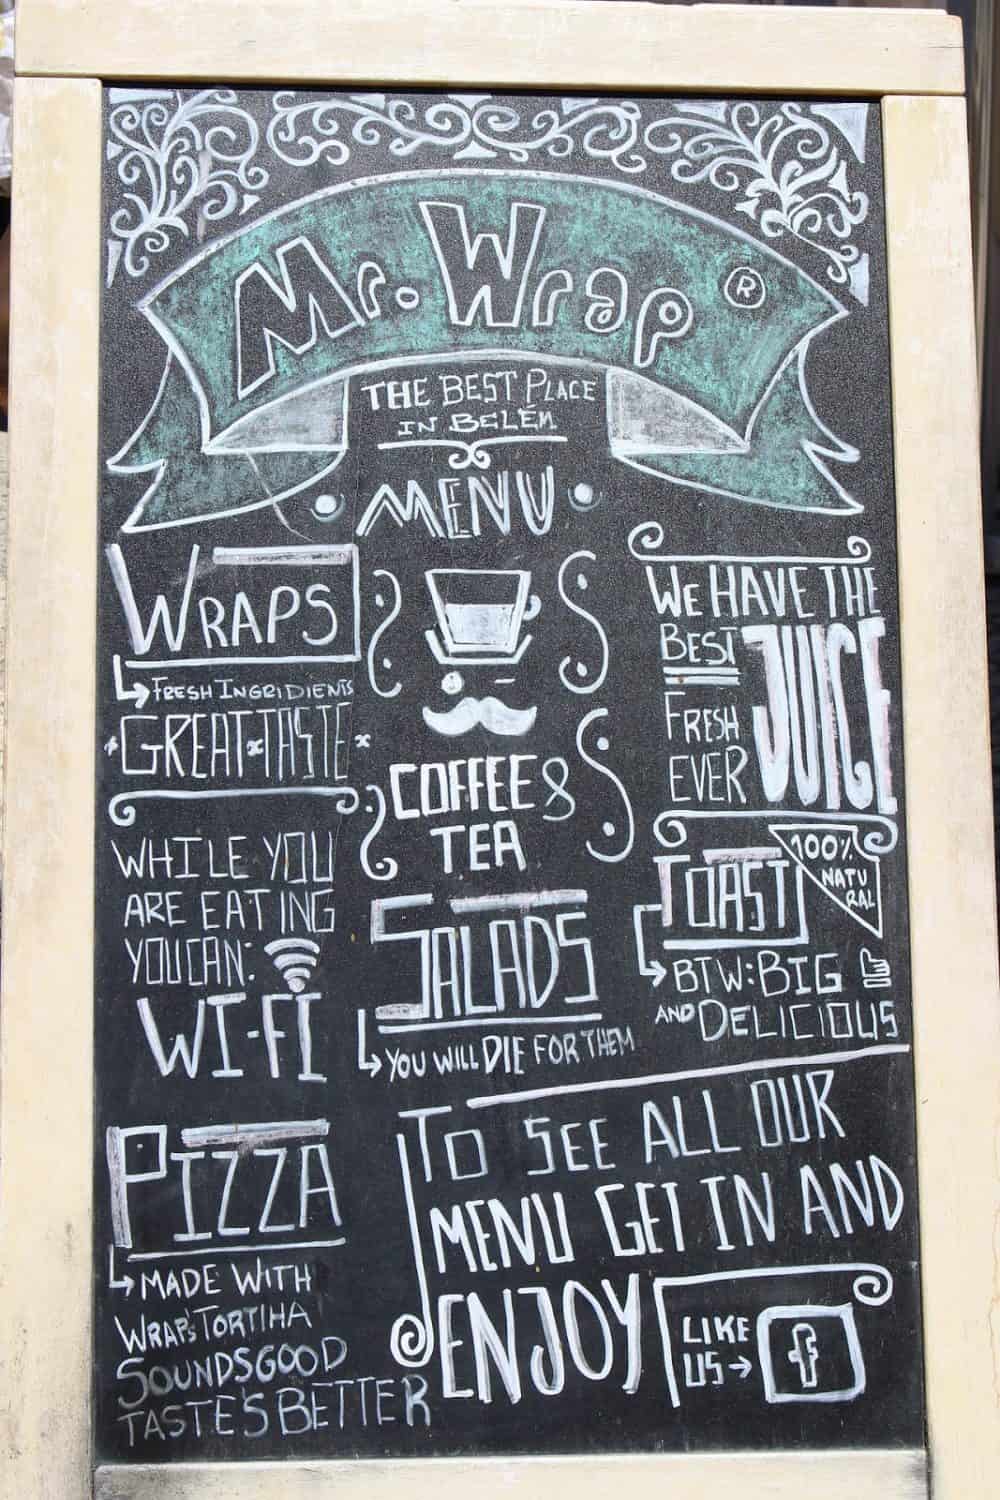 Mr. Wrap ®
THE BEST PLACE
IN BELÉM
MENU
WRAPS
FRESH INGRIDIENTS
GREAT TASTE
WHILE YOU
ARE EATING
YOU CAN:
WI-FI
PIZZA
MADE WITH
WRAP'S TORTIHA
SOUNDS GOOD
TASTE'S BETTER
COFFEE &
TEA
SALADS
YOU WILL DIE FOR THEM
WE HAVE THE
BEST
FRESH
EVER
JUICE
100%
NATU
RAL
TOAST
BTW: BIG
AND DELICIOUS
TO SEE ALL OUR
MENU GET IN AND
ENJOY
LIKE
US →
f